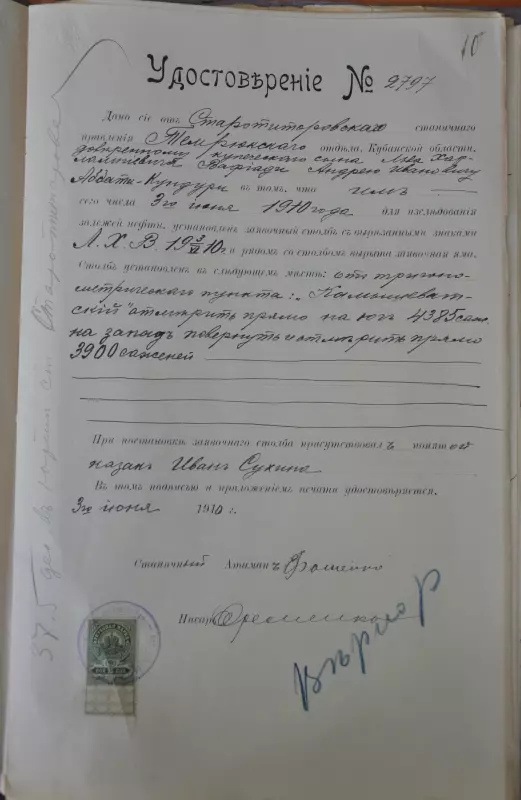 10
Удостовѣреніе № 2797
Дано сіе отъ Старотиторовскаго станичнаго
правленія Темрюкскаго отдѣла, Кубанской области,
довѣренному купеческаго сына Льва Хар-
Вафіади Андрею Ивановичу
Аббати-Кундури въ томъ, что имъ
сего числа 3го іюня 1910 года для изслѣдованія
залежей нефти, установленъ заявочный столбъ съ вырѣзанными знаками
Л. Х. В. 19 3/VI 10 г. и рядомъ со столбомъ вырыта заявочная яма.
Столбъ установленъ въ слѣдующемъ мѣстѣ: отъ тригоно-
метрическаго пункта: „Камышеват-
скій" отмѣрить прямо на югъ 4385 саж.
на западъ повернуть и отмѣрить прямо
3900 саженей
При постановкѣ заявочнаго столба присутствовалъ понятой
казакъ Иванъ Сукина
Въ томъ подписью и приложеніемъ печати удостовѣряется.
3го іюня 1910 г.
Станичный Атаманъ
Писарь
37.5 дес